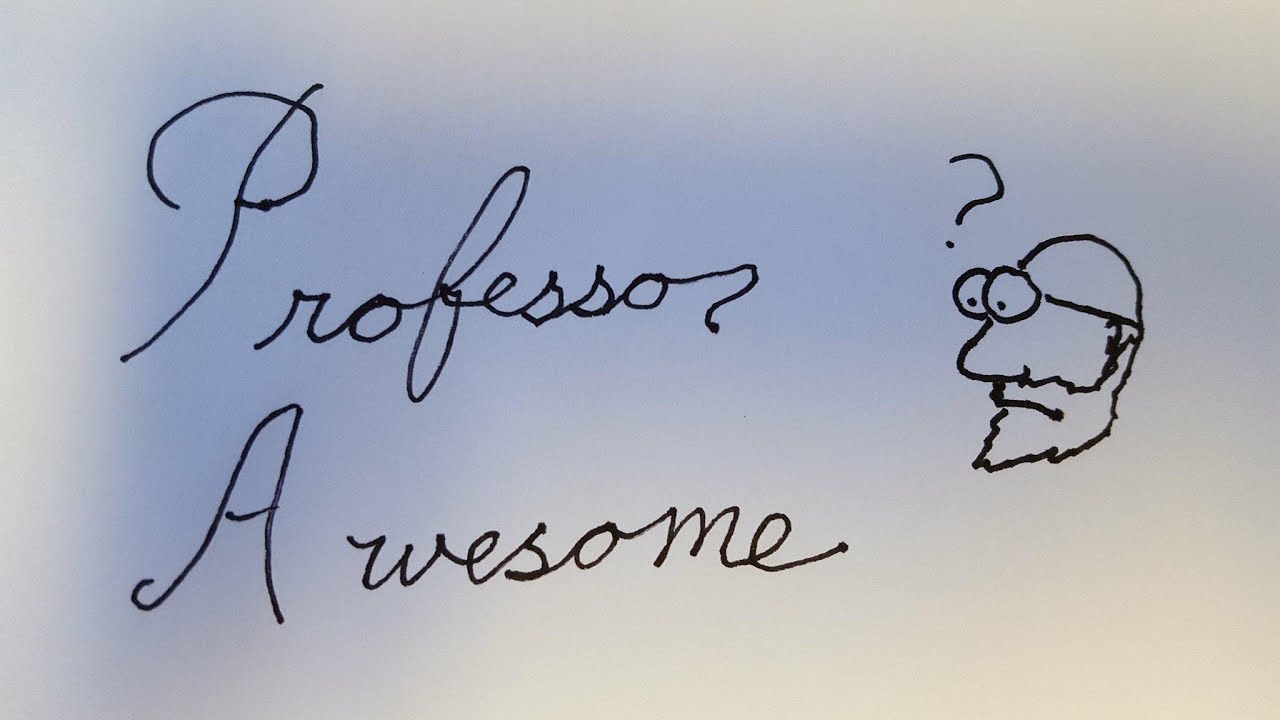 Professor
?
Awesome